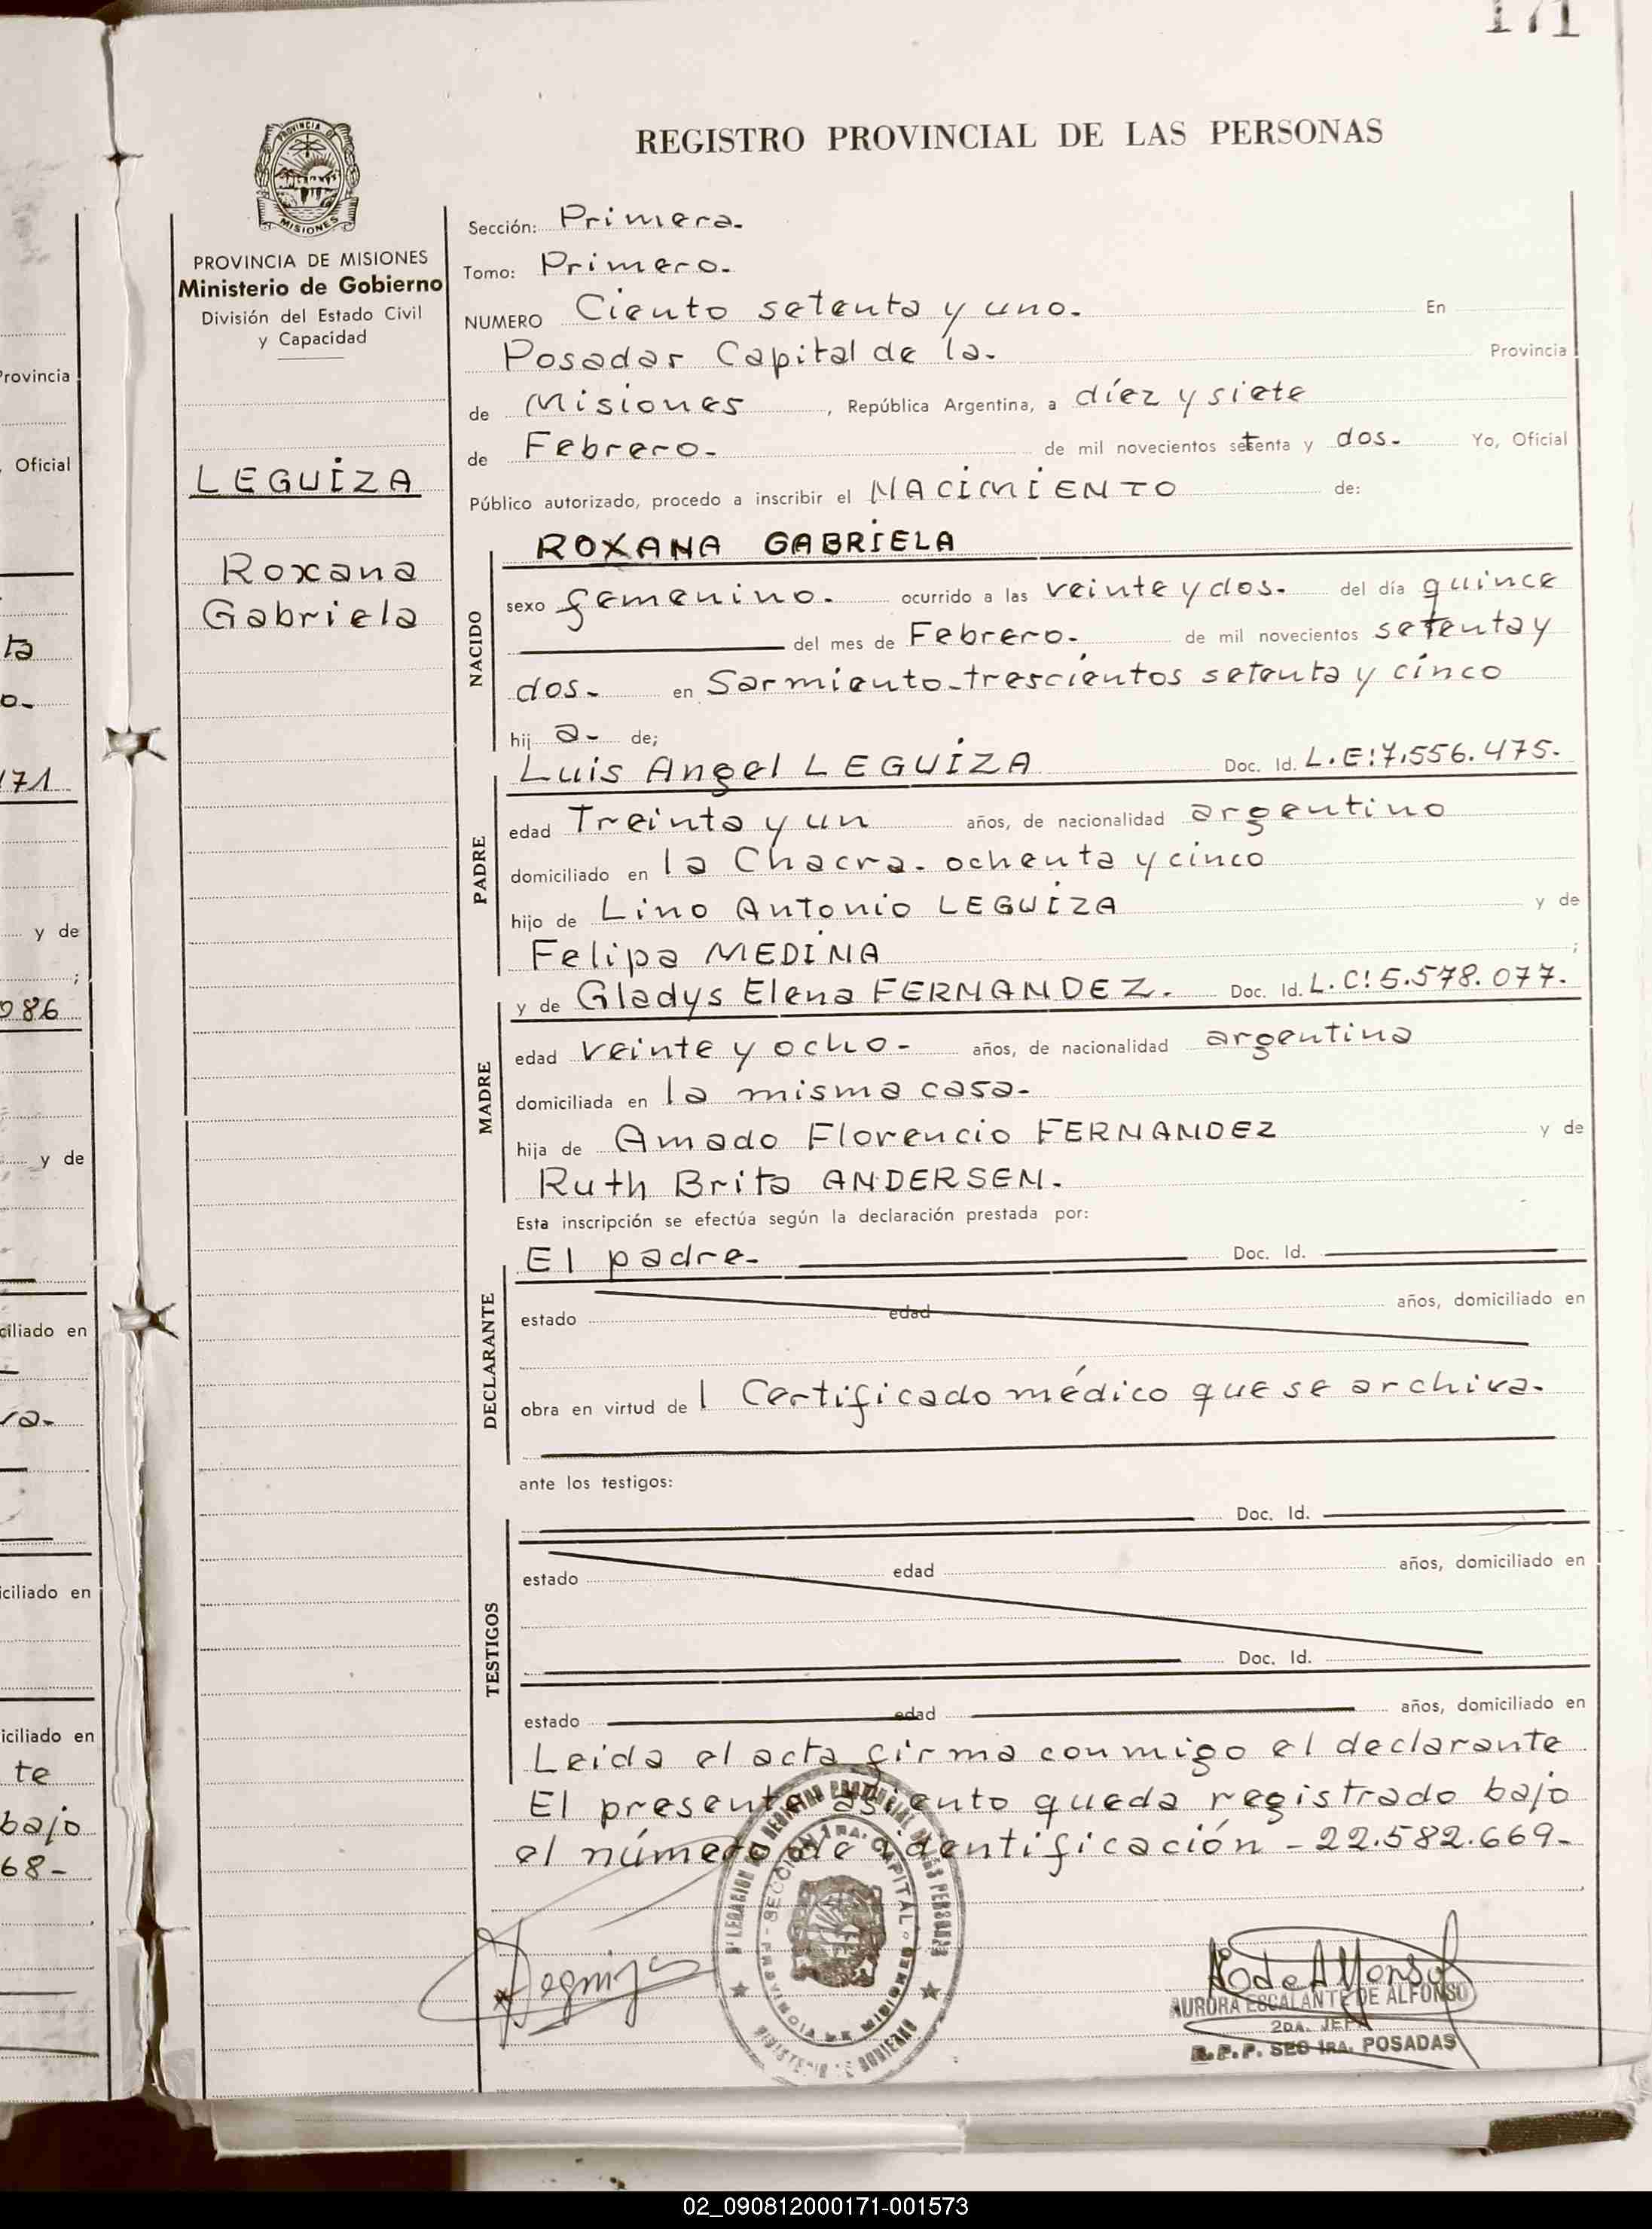 171
REGISTRO PROVINCIAL DE LAS PERSONAS
PROVINCIA DE MISIONES
Ministerio de Gobierno
División del Estado Civil
y Capacidad
LEGUIZA
Roxana
Gabriela
Sección: Primera.
Tomo: Primero.
NUMERO Ciento setenta y uno. En
Posadas Capital de la. Provincia
de Misiones, República Argentina, a díez y siete
de Febrero. de mil novecientos setenta y dos. Yo, Oficial
Público autorizado, procedo a inscribir el NACIMIENTO de:
NACIDO
ROXANA GABRIELA
sexo femenino. ocurrido a las veinte y dos. del día quince
del mes de Febrero. de mil novecientos setenta y
dos. en Sarmiento-trescientos setenta y cinco
hij a- de;
PADRE
Luis Angel LEGUIZA Doc. Id. L.E:7.556.475.
edad Treinta y un años, de nacionalidad argentino
domiciliado en la Chacra. ochenta y cinco
hijo de Lino Antonio LEGUIZA y de
Felipa MEDINA ;
MADRE
y de Gladys Elena FERNANDEZ. Doc. Id. L.C:5.578.077.
edad veinte y ocho- años, de nacionalidad argentina
domiciliada en la misma casa-
hija de Amado Florencio FERNANDEZ y de
Ruth Brita ANDERSEN.
Esta inscripción se efectúa según la declaración prestada por:
DECLARANTE
El padre. Doc. Id.
estado edad años, domiciliado en
obra en virtud de l Certificado médico que se archiva.
ante los testigos:
TESTIGOS
Doc. Id.
estado edad años, domiciliado en
Doc. Id.
estado edad años, domiciliado en
Leida el acta firma conmigo el declarante
El presente asiento queda registrado bajo
el número de identificación - 22.582.669-
DELEGACION DEL REGISTRO PROVINCIAL DE LAS PERSONAS
SECCION 1RA. CAPITAL
PROVINCIA DE MISIONES
MINISTERIO DE GOBIERNO
Leguiza
AURORA ESCALANTE DE ALFONSO
2DA. JEFA
R.P.P. SEC 1RA. POSADAS
Provincia
Oficial
ta
o-
171
y de
;
086
y de
ciliado en
va-
iciliado en
iciliado en
te
bajo
68-
02_090812000171-001573